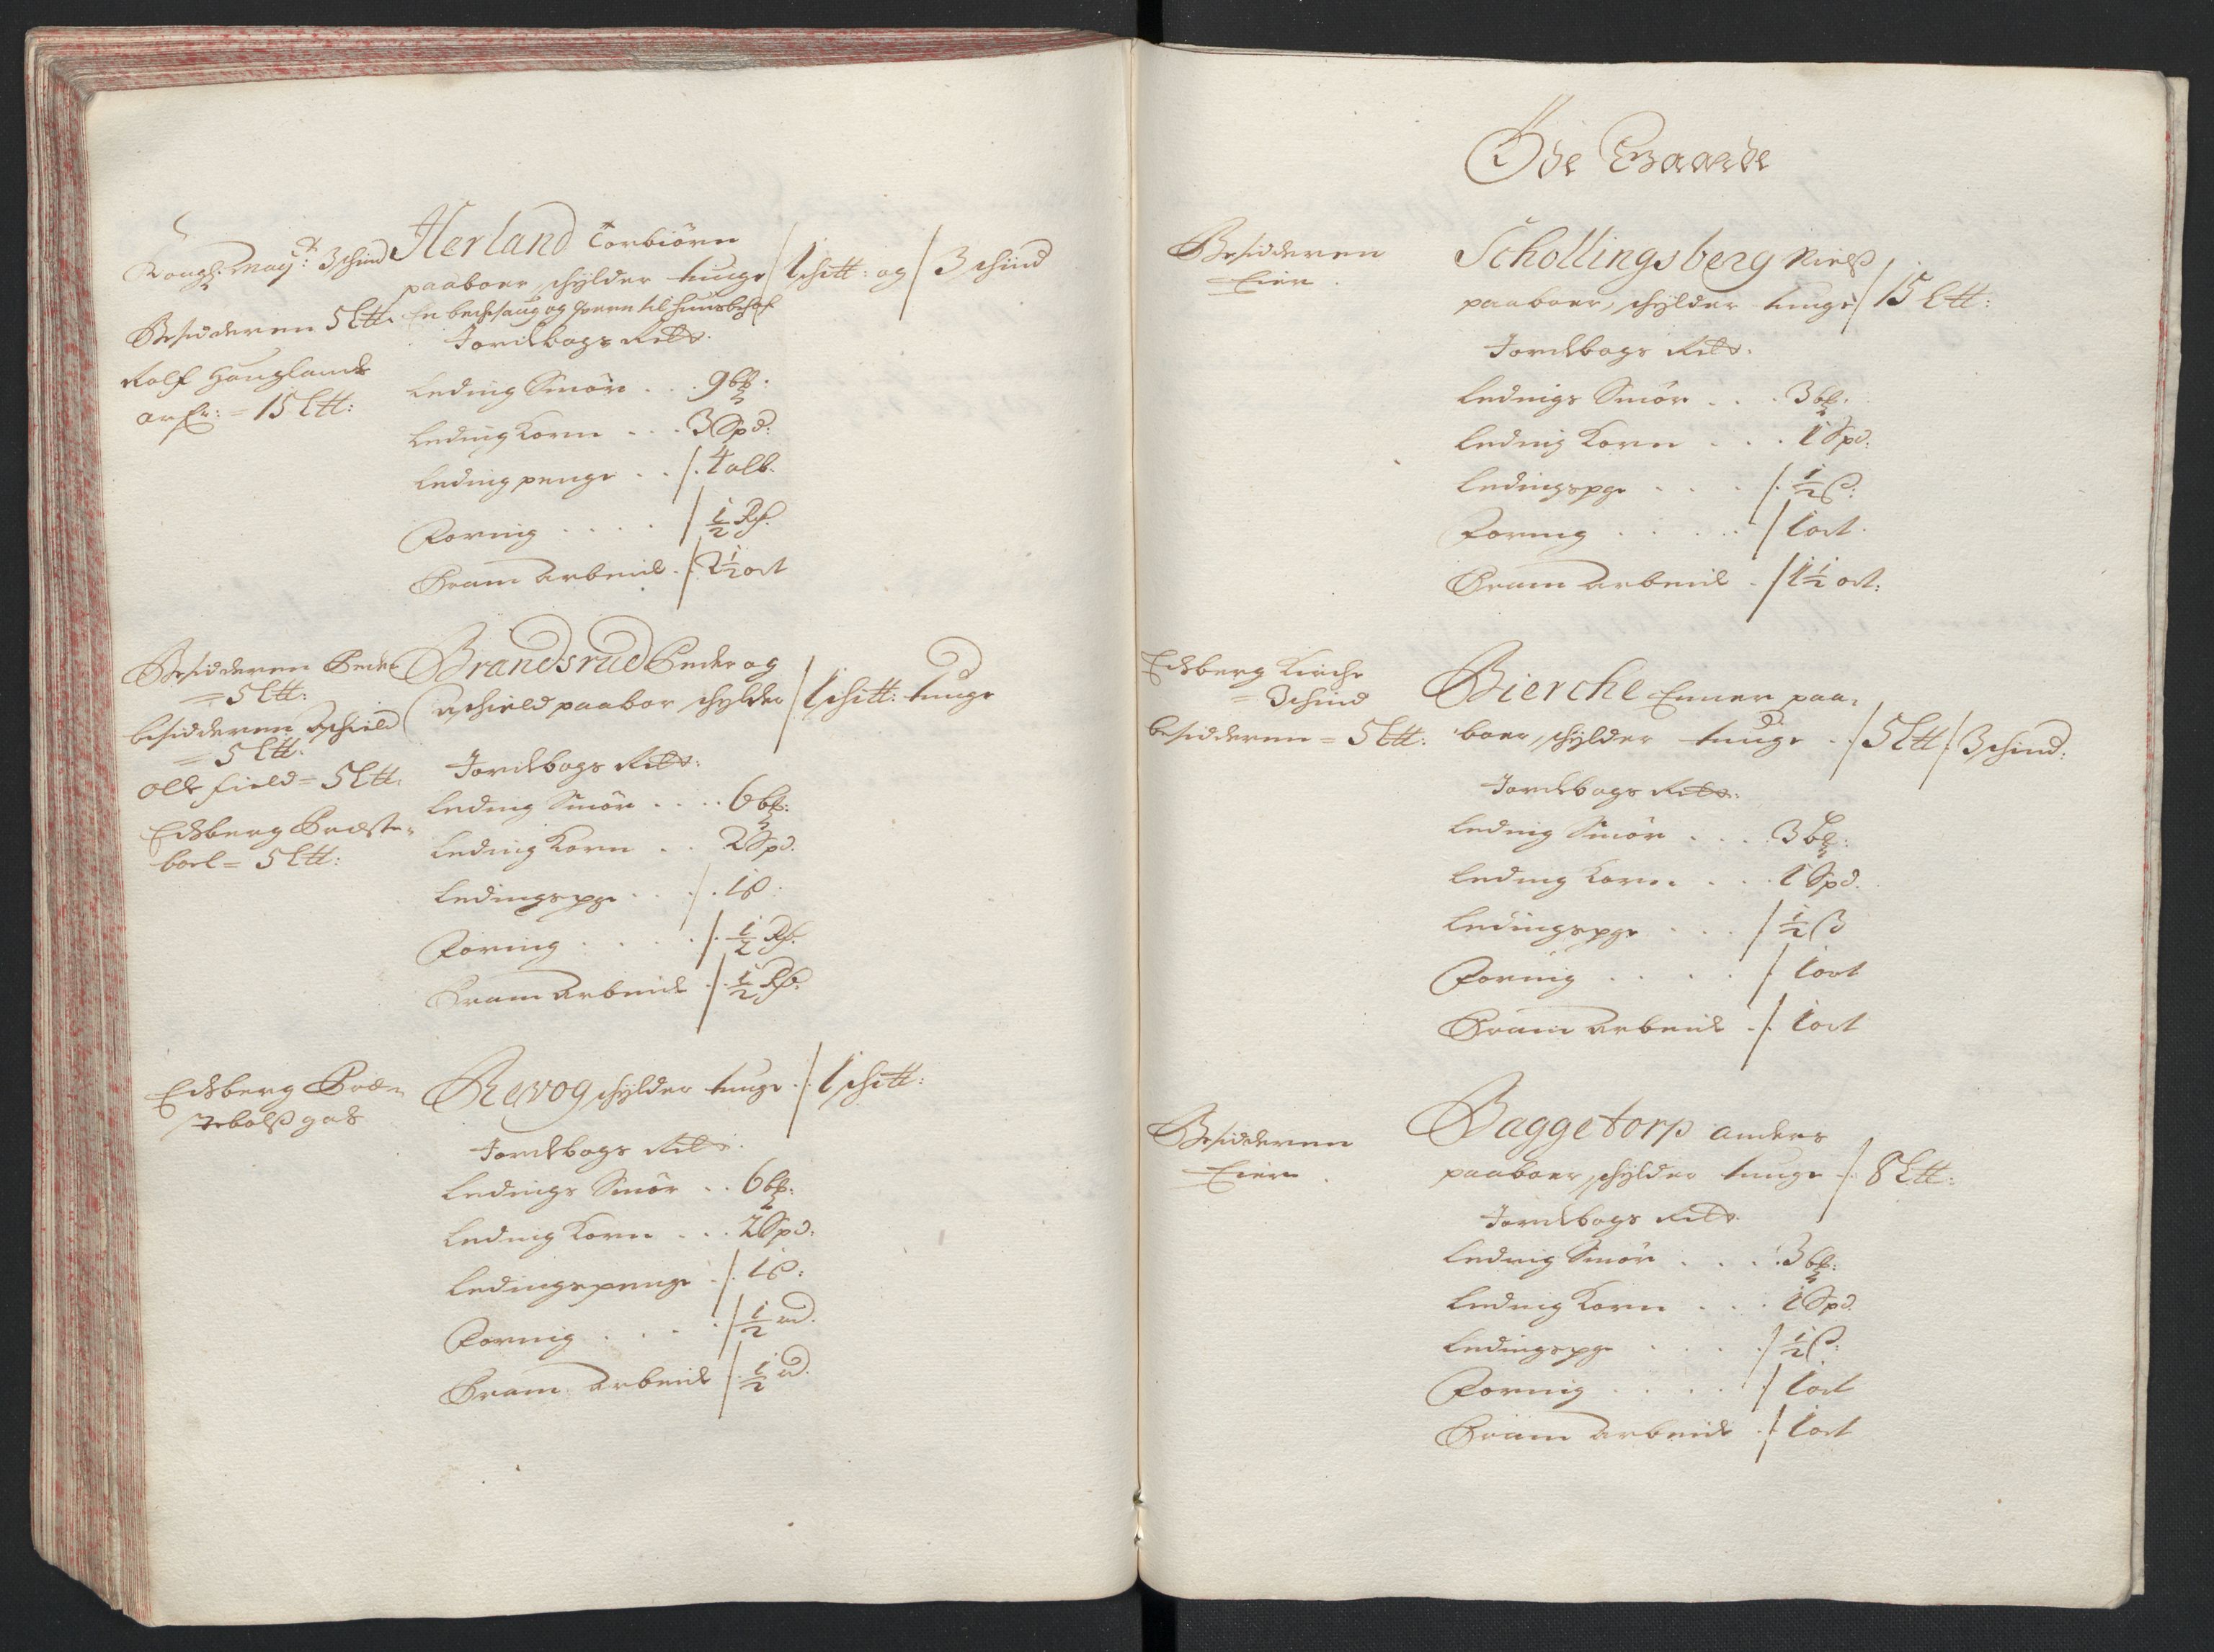 Kongl: May:tt 3 schind
Besidderen 5 Ltt:
Rolf Hauglands
arfr: = 15 Ltt:
Herland Torbiörn
paaboer, schylder tunge 1 schitt: og 3 schind
En bechsaug og qvern til huusbehof
Jordbogs Rett:
Leding Smör . . . 9 bp:
Leding Korn . . . 3 Spd:
Leding penge . . 4 alb.
Foring . . . . ½ Rd.
Fram arbeid . 2½ ort
Besidderen Peder
= 5 Ltt:
besidderen Aschield
= 5 Ltt.
Olle field = 5 Ltt.
Edsberg Præste-
boel = 5 Ltt:
Brandsrud Peder og
Aschield paabor schylder 1 schitt: tunge
Jordbogs Rett:
Leding Smör . . . . 6 bp:
Leding Korn . . 2 Spd.
Ledingspge . . . 1 ß.
Foring . . . . . ½ Rd.
Fram arbeid . ½ Rd.
Edsberg Præ-
stebolß gods
Revog schylder tunge . 1 schitt:
Jordbogs Rett.
Ledings Smör . . 6 bp:
Leding Korn . . . 2 Spd.
Ledingspenge . 1 ß:
Foring . . . . ½ rd.
Fram arbeid ½ rd.
Öde Gaarde
Besidderen
Eier.
Schollingsberg Nielß
paaboer, schylder tunge 15 Ltt:
Jordbogs Rett.
Ledings Smör . . . 3 bp:
Leding Korn . . . 1 Spd:
Ledingspge . . . . ½ ß:
Foring . . . . . 1 ort.
Fram arbeid . 1½ ort.
Edsberg Kirche
= 3 schind
besidderen = 5 Ltt:
Bierche Enner paa-
boer, schylder tunge . 5 Ltt 3 schind:
Jordbogs Rett:
Leding Smör . . . 3 bp:
Leding Korn . . . 1 Spd.
Ledingspge . . . ½ ß
Foring . . . . . 1 ort
Fram arbeid . 1 ort
Besidderen
Eier.
Baggetorp anders
paaboer, schylder tunge . 8 Ltt:
Jordbogs Rett.
Leding Smör . . . . 3 bp:
Leding Korn . . . 1 Spd.
Ledingspge . . . . ½ ß:
Foring . . . . . 1 ort
Fram arbeid . 1 ort